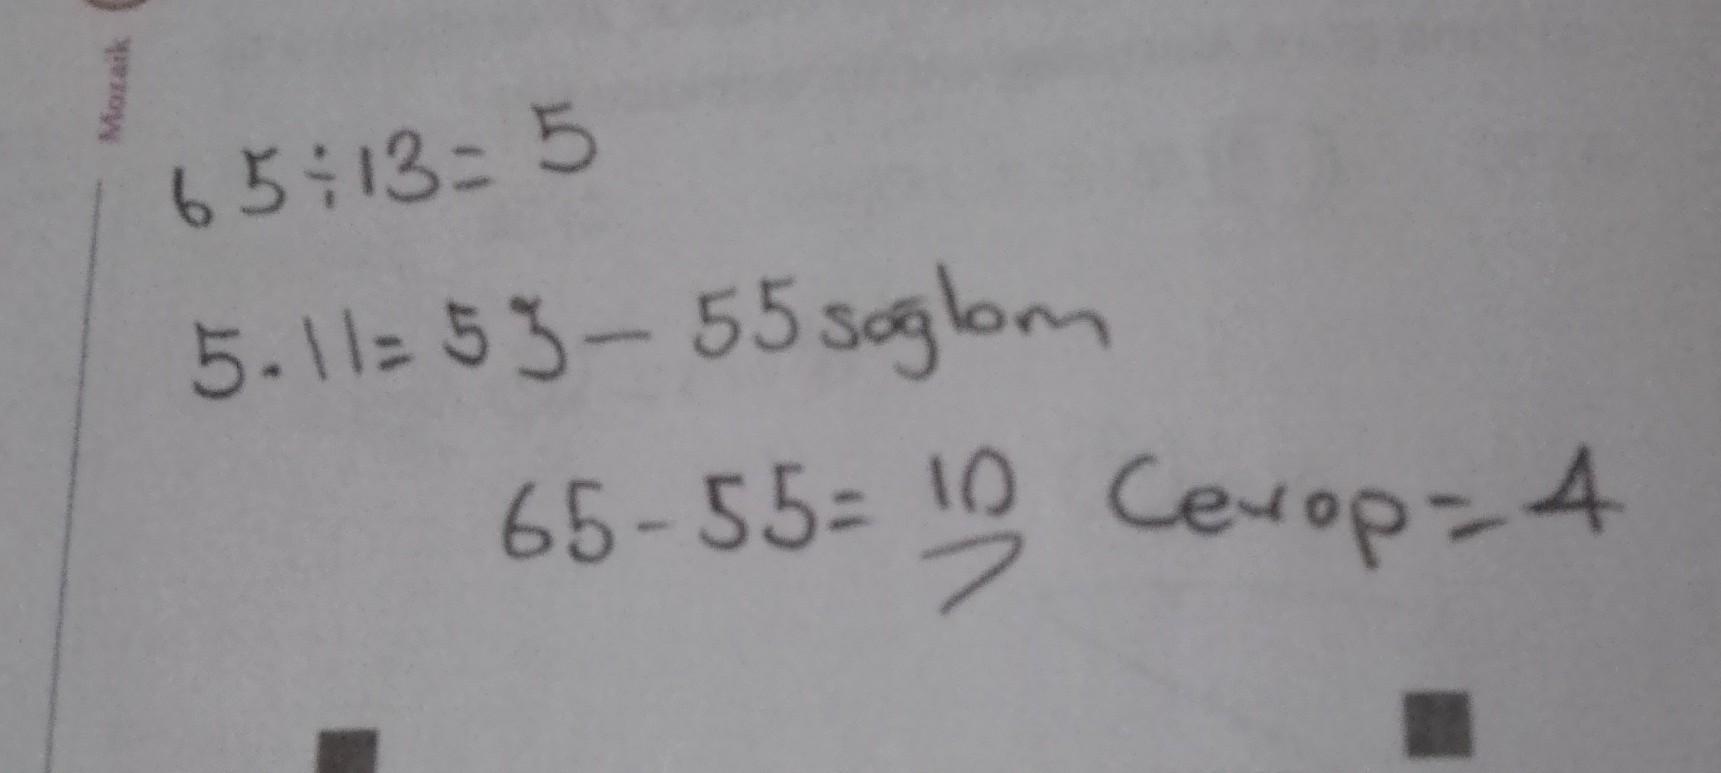 Mozaik
65÷13= 5
5.11= 55 – 55 sağlam
65-55= 10 Cevap= A